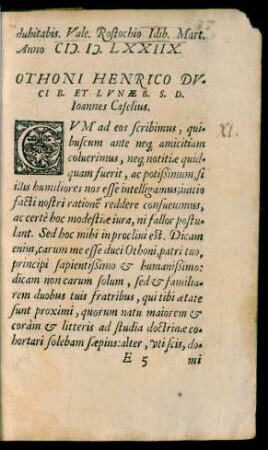 dubitabis. Vale. Rostochio Idib. Mart.
Anno CIƆ. IƆ LXXIIX.
OTHONI HENRICO DV-
CI B. ET LVNÆ B. S. D.
Ioannes Caselius.
CVM ad eos scribimus, qui-
buscum ante neq; amicitiam
coluerimus, neq; notitiæ quid-
quam fuerit, ac potissimum, si
illis humiliores nos esse intelligamus; initio
facti nostri rationē reddere consueuimus,
ac certè hoc modestiæ iura, ni fallor postu-
lant. Sed hoc mihi in procliui est. Dicam
enim, carum me esse duci Othoni, patri tuo,
principi sapientissimo & humanissimo:
dicam non carum solum, sed & familia-
rem duobus tuis fratribus, qui tibi ætate
sunt proximi, quorum natu maiorem &
coràm & litteris ad studia doctrinæ co-
hortari solebam sæpius: alter, vti scis, do-
E 5 mi
XI.